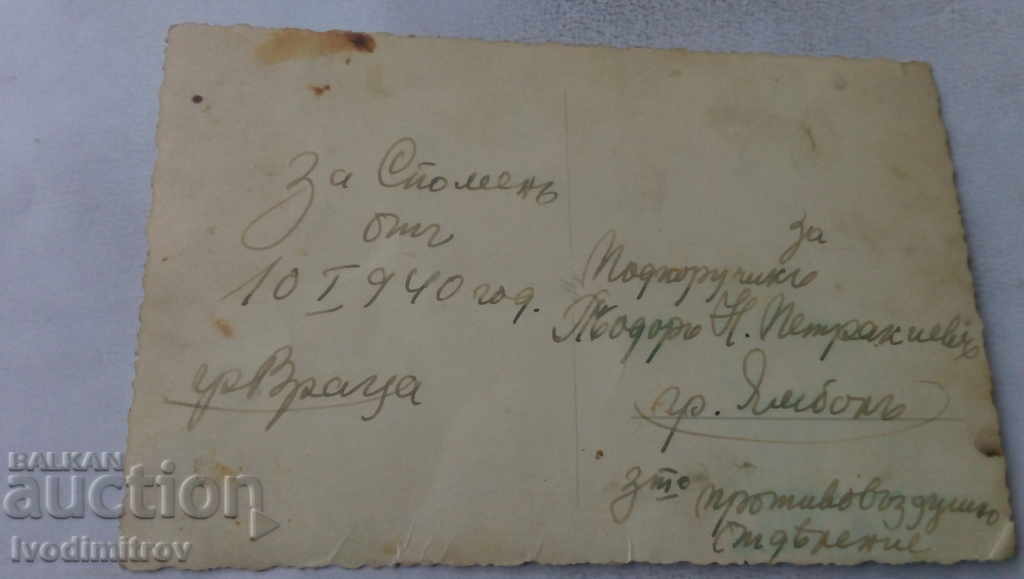 За Споменъ
отъ
10 I 940 год.
гр Враца
за
Подпоручикъ
Тодоръ Н. Петракиевъ
гр. Ямболъ
3то противовъздушно
отдѣление
BALKAN
auction
Ivodimitrov